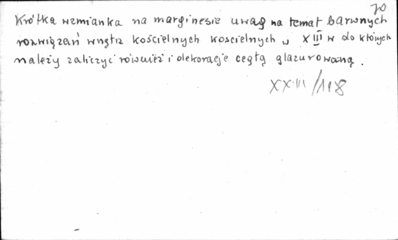 70
Krótka wzmianka na marginesie uwag na temat barwnych
rozwiązań wnętrz kościelnych koscielnych w XIII w do których
należy zaliczyć również i dekoracje cegłą glazurowaną.
XXIII/118